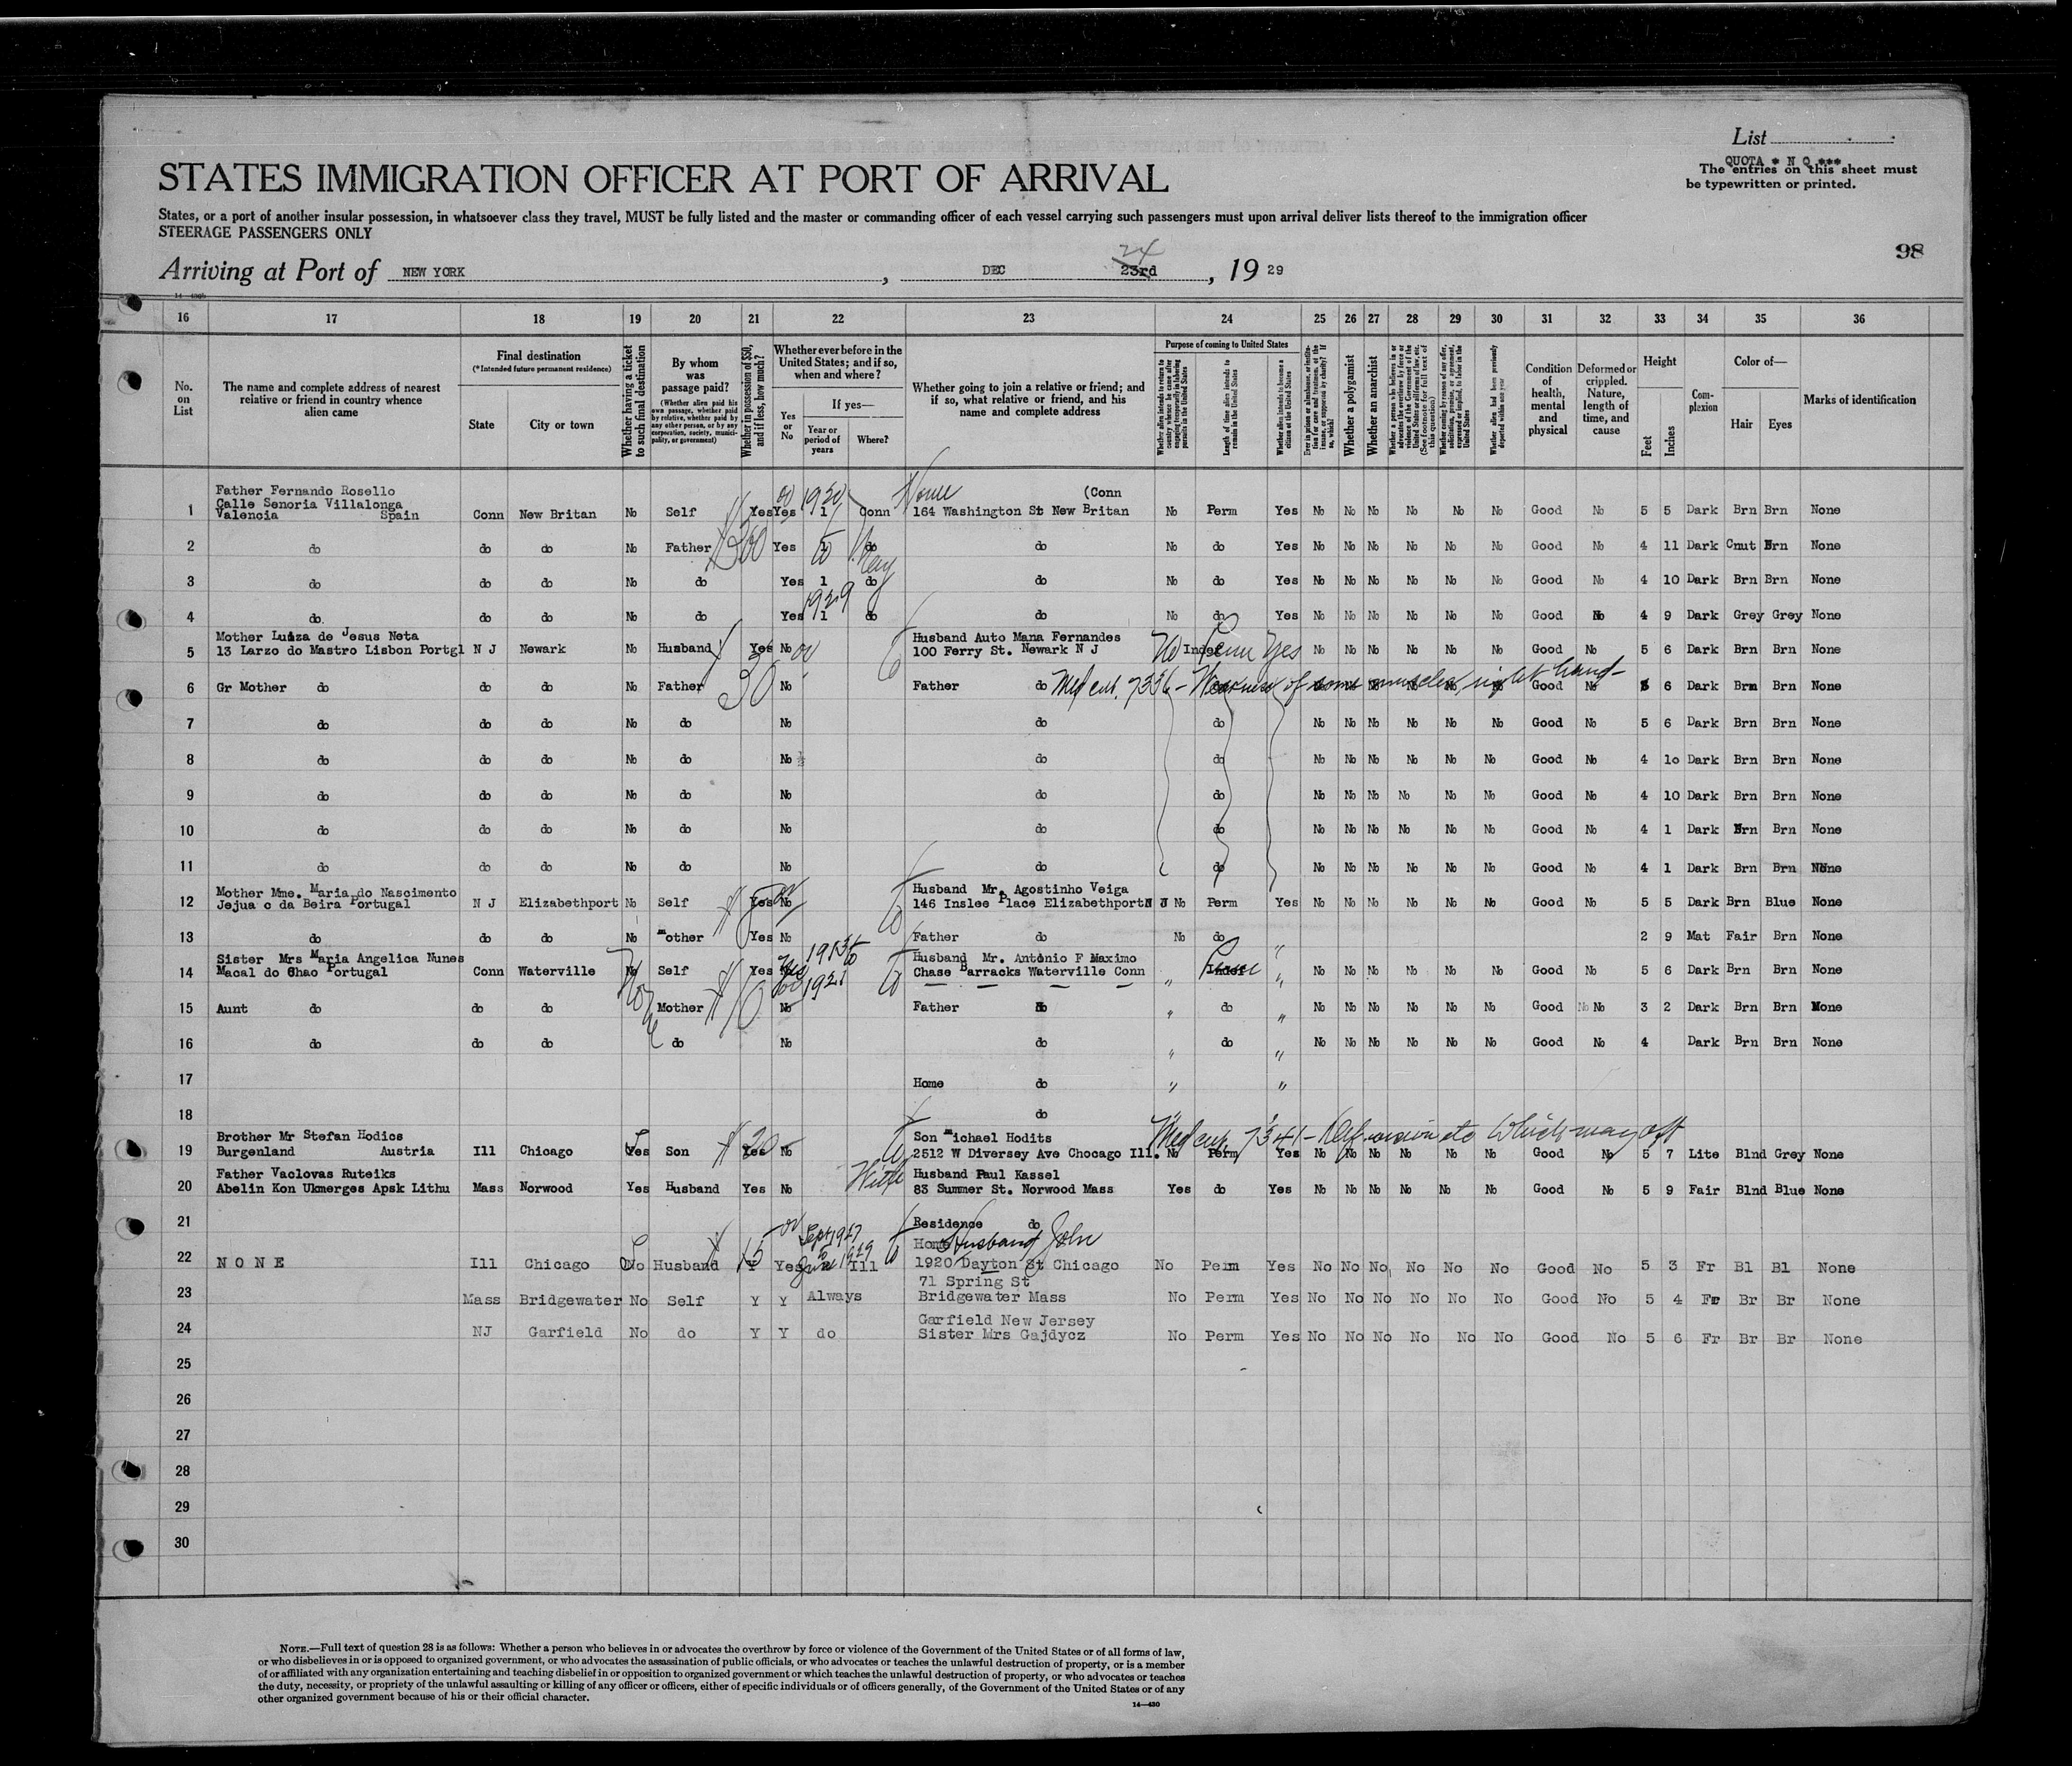 List
QUOTA * N Q ***
The entries on this sheet must
be typewritten or printed.
STATES IMMIGRATION OFFICER AT PORT OF ARRIVAL
States, or a port of another insular possession, in whatsoever class they travel, MUST be fully listed and the master or commanding officer of each vessel carrying such passengers must upon arrival deliver lists thereof to the immigration officer
STEERAGE PASSENGERS ONLY
98
24
Arriving at Port of NEW YORK , DEC 23rd , 19 29
16 17 18 19 20 21 22 23 24 25 26 27 28 29 30 31 32 33 34 35 36
No. on List
The name and complete address of nearest relative or friend in country whence alien came
Final destination
(*Intended future permanent residence)
State
City or town
Whether having a ticket to such final destination
By whom was passage paid?
(Whether alien paid his own passage, whether paid by relative, whether paid by any other person, or by any corporation, society, municipality, or government)
Whether in possession of $50, and if less, how much?
Whether ever before in the United States; and if so, when and where?
Yes or No
If yes—
Year or period of years
Where?
Whether going to join a relative or friend; and if so, what relative or friend, and his name and complete address
Purpose of coming to United States
Whether alien intends to return to country whence he came after engaging temporarily in laboring pursuits in the United States
Length of time alien intends to remain in the United States
Whether alien intends to become a citizen of the United States
Whether a polygamist
Whether an anarchist
Condition of health, mental and physical
Deformed or crippled. Nature, length of time, and cause
Height
Feet
Inches
Complexion
Color of—
Hair
Eyes
Marks of identification
Father Fernando Rosello
Calle Senoria Villalonga (Conn
1 Valencia Spain Conn New Britan No Self Yes Yes 1 Conn 164 Washington St New Britan No Perm Yes No No No No No No Good No 5 5 Dark Brn Brn None
2 do do do No Father Yes 1 do do No do Yes No No No No No No Good No 4 11 Dark Cnut Brn None
3 do do do No do Yes 1 do do No do Yes No No No No No No Good No 4 10 Dark Brn Brn None
1929
4 do do do No do Yes 1 do do No do Yes No No No No No No Good No 4 9 Dark Grey Grey None
Mother Luiza de Jesus Neta Husband Auto Mana Fernandes
5 13 Larzo do Mastro Lisbon Portgl N J Newark No Husband Yes No 100 Ferry St. Newark N J No Perm Yes No No No No No No Good No 5 6 Dark Brn Brn None
6 Gr Mother do do do No Father 30 No Father do Med cert. 7336 - Weakness of some muscles, right hand - Good No 5 6 Dark Brn Brn None
7 do do do No do No do do No No No No No No Good No 5 6 Dark Brn Brn None
8 do do do No do No do do No No No No No No Good No 4 10 Dark Brn Brn None
9 do do do No do No do do No No No No No No Good No 4 10 Dark Brn Brn None
10 do do do No do No do do No No No No No No Good No 4 1 Dark Brn Brn None
11 do do do No do No do do No No No No No No Good No 4 1 Dark Brn Brn None
Mother Mme. Maria do Nascimento Husband Mr. Agostinho Veiga
12 Jejua c da Beira Portugal N J Elizabethport No Self Yes No 146 Inslee Place Elizabethport N J No Perm Yes No No No No No No Good No 5 5 Dark Brn Blue None
13 do do do No mother Yes No Father do No do " 2 9 Mat Fair Brn None
Sister Mrs Maria Angelica Nunes Husband Mr. António F Maximo
14 Macal do Chao Portugal Conn Waterville No Self Yes Chase Barracks Waterville Conn " " No No No No No No Good No 5 6 Dark Brn Brn None
15 Aunt do do do Mother No Father do " do " No No No No No No Good No No 3 2 Dark Brn Brn None
16 do do do do No do " do " No No No No No No Good No 4 Dark Brn Brn None
17 Home do " "
18 do
Brother Mr Stefan Hodics Son michael Hodits
19 Burgenland Austria Ill Chicago Yes Son $20 Yes No 2512 W Diversey Ave Chocago Ill. No Perm Yes No No No No No No Good No 5 7 Lite Blnd Grey None
Father Vaclovas Ruteiks Husband Paul Kassel
20 Abelin Kon Ukmerges Apsk Lithu Mass Norwood Yes Husband Yes No 83 Summer St. Norwood Mass Yes do Yes No No No No No No Good No 5 9 Fair Blnd Blue None
21 Residence do
Home Husband John
22 N O N E Ill Chicago No Husband 15 Yes Ill 1920 Dayton St Chicago No Perm Yes No No No No No No Good No 5 3 Fr Bl Bl None
71 Spring St
23 Mass Bridgewater No Self Y Y Always Bridgewater Mass No Perm Yes No No No No No No Good No 5 4 Fr Br Br None
Garfield New Jersey
24 NJ Garfield No do Y Y do Sister Mrs Gajdycz No Perm Yes No No No No No No Good No 5 6 Fr Br Br None
25
26
27
28
29
30
NOTE.—Full text of question 28 is as follows: Whether a person who believes in or advocates the overthrow by force or violence of the Government of the United States or of all forms of law,
or who disbelieves in or is opposed to organized government, or who advocates the assassination of public officials, or who advocates or teaches the unlawful destruction of property, or is a member
of or affiliated with any organization entertaining and teaching disbelief in or opposition to organized government or which teaches the unlawful destruction of property, or who advocates or teaches
the duty, necessity, or propriety of the unlawful assaulting or killing of any officer or officers, either of specific individuals or of officers generally, of the Government of the United States or of any
other organized government because of his or their official character.
14—430